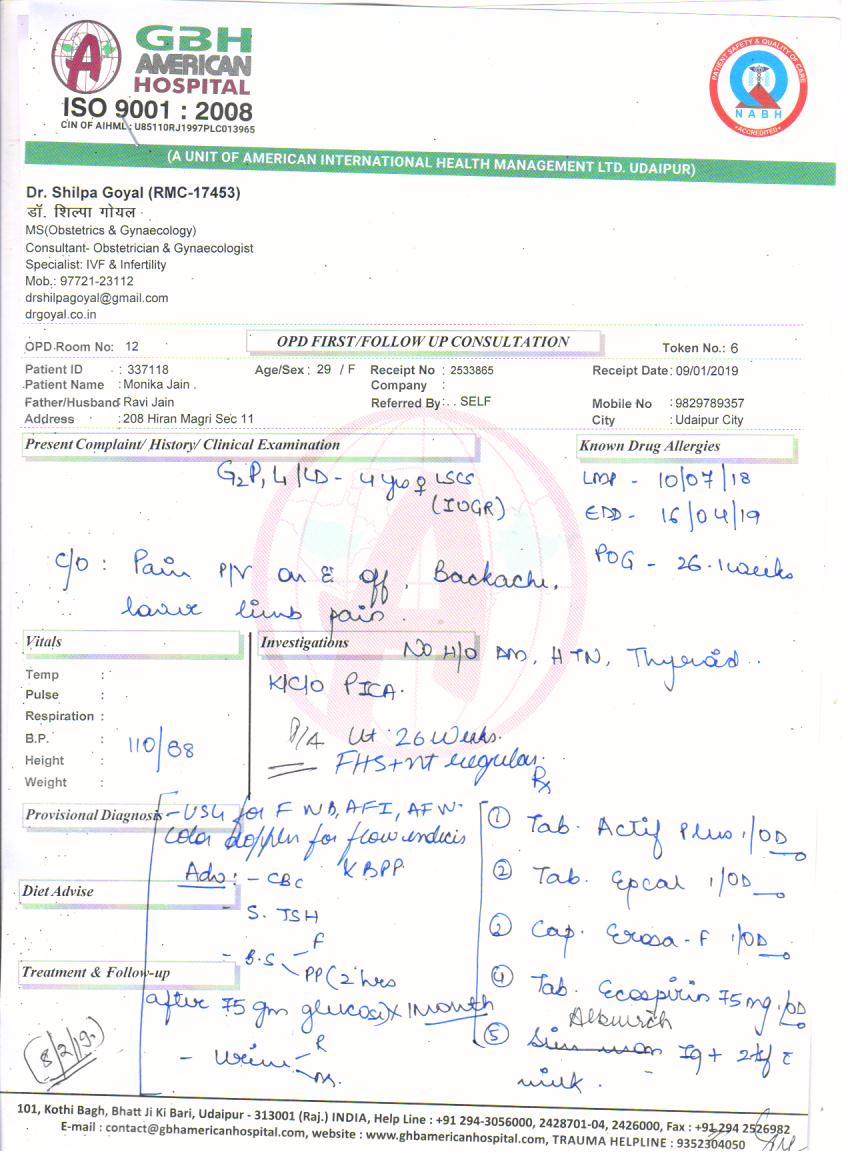 GBH
AMERICAN
HOSPITAL
ISO 9001 : 2008
CIN OF AIHML : U85110RJ1997PLC013965
PATIENT SAFETY & QUALITY OF CARE
NABH
ACCREDITED
(A UNIT OF AMERICAN INTERNATIONAL HEALTH MANAGEMENT LTD. UDAIPUR)
Dr. Shilpa Goyal (RMC-17453)
डॉ. शिल्पा गोयल
MS(Obstetrics & Gynaecology)
Consultant- Obstetrician & Gynaecologist
Specialist: IVF & Infertility
Mob.: 97721-23112
drshilpagoyal@gmail.com
drgoyal.co.in
OPD Room No: 12 OPD FIRST/FOLLOW UP CONSULTATION Token No.: 6
Patient ID : 337118 Age/Sex : 29 / F Receipt No : 2533865 Receipt Date: 09/01/2019
Patient Name : Monika Jain . Company :
Father/Husband: Ravi Jain Referred By: . . SELF Mobile No : 9829789357
Address : 208 Hiran Magri Sec 11 City : Udaipur City
Present Complaint/ History/ Clinical Examination Known Drug Allergies
G2P1L1/LD - 4 yrs ♀ LSCS LMP - 10/07/18
(IUGR) EDD - 16/04/19
C/O : Pain P/V on & off, Backache, POG - 26.1 weeks
lower limb pain.
Vitals Investigations No H/O DM, HTN, Thyroid.
Temp :
Pulse : K/C/O PICA.
Respiration :
B.P. : 110/88 P/A Ut 26 Weeks.
Height : FHS+nt regular.
Weight : Rx
Provisional Diagnosis - USG for FWB, AFI, AFW.
color doppler for flow indicis
& BPP
① Tab. Actif Plus 1/OD
Adv : - CBC ② Tab. Epcal 1/OD
Diet Advise
- S. TSH
③ Cap. Erosa-F 1/OD
- B.S F
PP (2 hrs
Treatment & Follow-up ④ Tab. Ecospirin 75 mg 1/OD
after 75 gm glucose) x 1 month
⑤ 2tsf c̄
milk.
8/2/19.
- Urine R
M.
101, Kothi Bagh, Bhatt Ji Ki Bari, Udaipur - 313001 (Raj.) INDIA, Help Line : +91 294-3056000, 2428701-04, 2426000, Fax : +91 294 2526982
E-mail : contact@gbhamericanhospital.com, website : www.ghbamericanhospital.com, TRAUMA HELPLINE : 9352304050